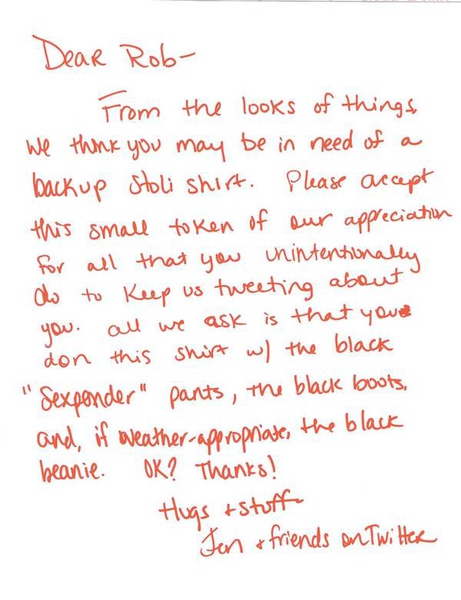 Dear Rob-
From the looks of things,
we think you may be in need of a
backup Stoli shirt. Please accept
this small token of our appreciation
for all that you unintentionally
do to keep us tweeting about
you. All we ask is that you
don this shirt w/ the black
"Sexpender" pants, the black boots,
and, if weather-appropriate, the black
beanie. OK? Thanks!
Hugs + stuff-
Jen + friends on Twitter